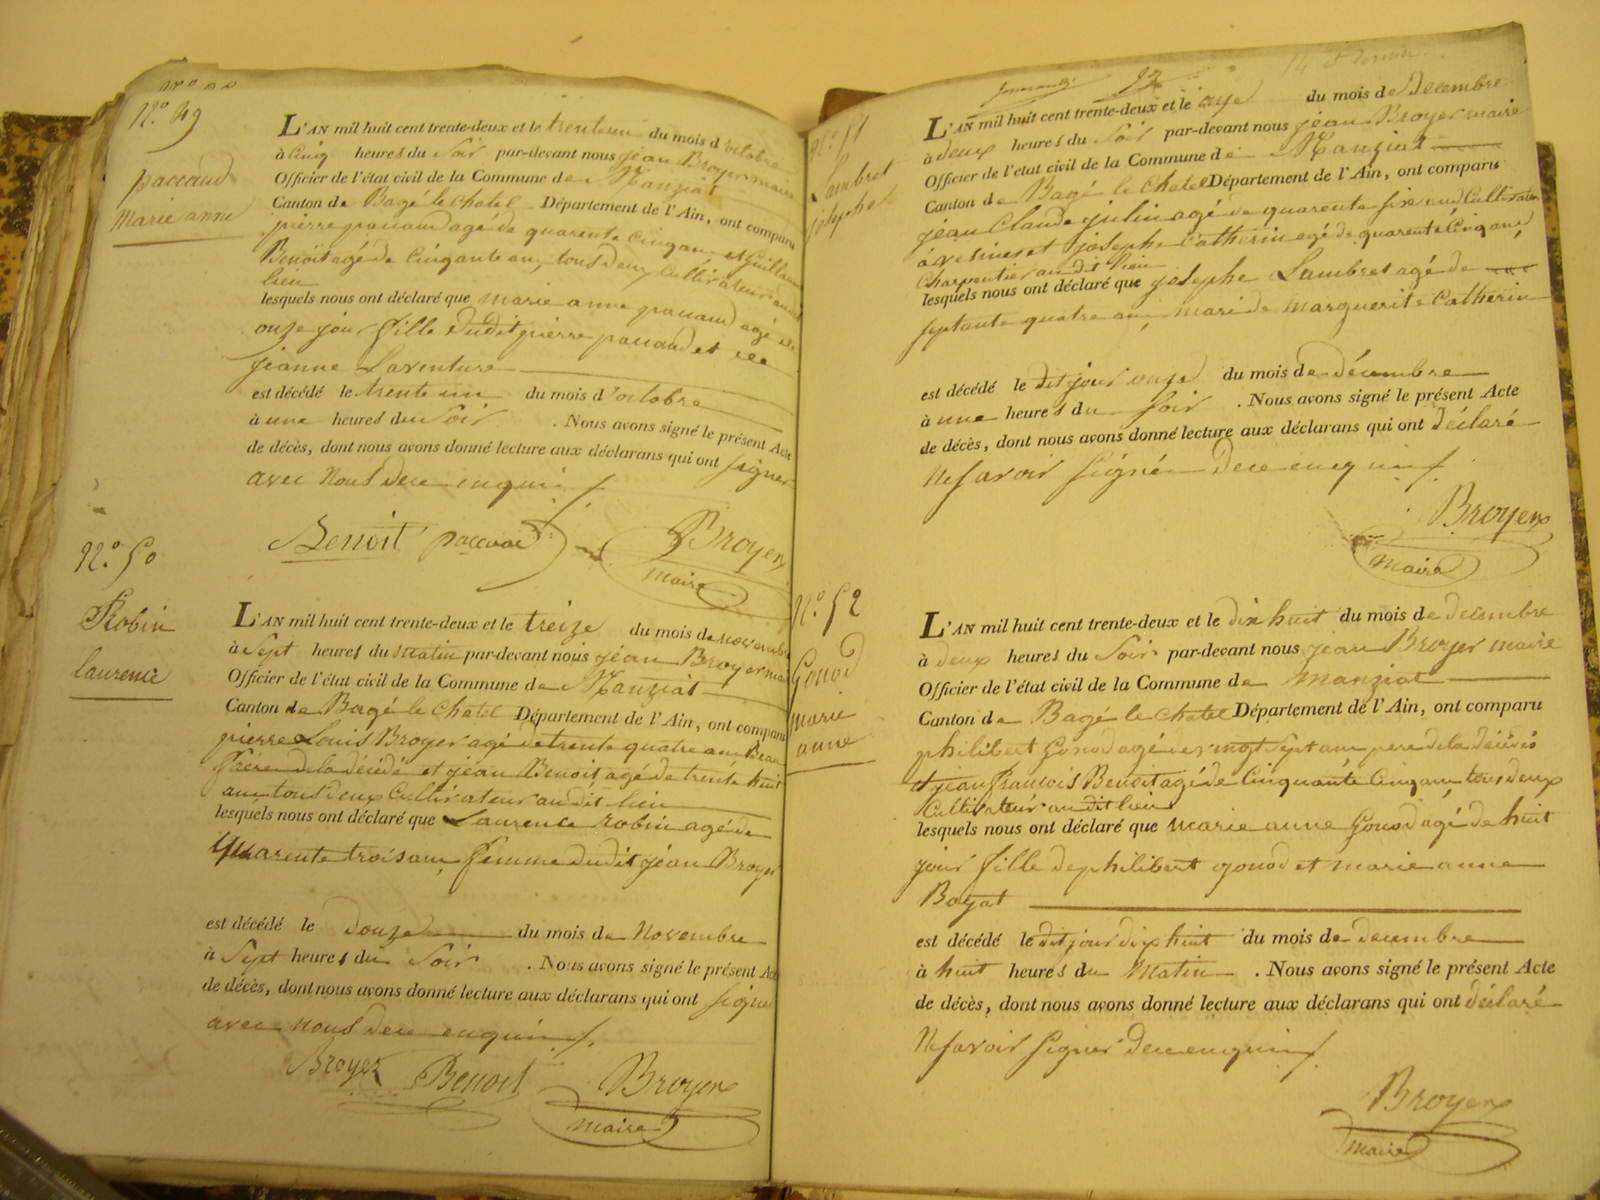 N.o 49
paccaud
Marie anne
L'AN mil huit cent trente-deux et le trente un du mois d'octobre
à Cinq heures du Soir par-devant nous jean Broyer maire
Officier de l'état civil de la Commune de Manziat
Canton de Bagé le Chatel Département de l'Ain, ont comparu
pierre paccaud agé de quarente cinq ans et Guillaume
Benoit agé de Cinquante ans, tous deux Cultivateur audit
lieu
lesquels nous ont déclaré que marie anne paccaud agé de
onze jour fille dudit pierre paccaud et de
jeanne Laventure
est décédé le trente un du mois d'octobre
à une heures du Soir . Nous avons signé le présent Acte
de décès, dont nous avons donné lecture aux déclarans qui ont Signer
avec Nous de ce enquis
Benoit paccaud Broyer
maire
N.o 50
Robin
laurence
L'AN mil huit cent trente-deux et le treize du mois de novembre
à Sept heures du matin par-devant nous jean Broyer maire
Officier de l'état civil de la Commune de Manziat
Canton de Bagé le Chatel Département de l'Ain, ont comparu
pierre Louis Broyer agé de trente quatre ans Beau
frere de la décédé et jean Benoit agé de trente huit
ans tous deux Cultivateur audit lieu
lesquels nous ont déclaré que Laurence Robin agé de
Quarente trois ans, femme dudit jean Broyer
est décédé le douze du mois de Novembre
à Sept heures du Soir . Nous avons signé le présent Acte
de décès, dont nous avons donné lecture aux déclarans qui ont Signé
avec nous de ce enquis
Broyer Benoit Broyer
maire
N.o 51
Lambret
josephe
L'AN mil huit cent trente-deux et le onze du mois de Decembre
à deux heures du Soir par-devant nous jean Broyer maire
Officier de l'état civil de la Commune de Manziat
Canton de Bagé le Chatel Département de l'Ain, ont comparu
jean Claude julin agé de quarente six ans Cultivateur
a vesines et josephe Catherin agé de quarente Cinq ans,
Charpentier audit lieu
lesquels nous ont déclaré que josephe Lambret agé de
septante quatre ans, mari de marguerite Catherin
est décédé le dit jour onze du mois de décembre
à une heures du Soir . Nous avons signé le présent Acte
de décès, dont nous avons donné lecture aux déclarans qui ont déclaré
Ne savoir Signé de ce enquis
Broyer
maire
N.o 52
Gonod
marie
anne
L'AN mil huit cent trente-deux et le dix huit du mois de decembre
à deux heures du Soir par-devant nous jean Broyer maire
Officier de l'état civil de la Commune de manziat
Canton de Bagé le Chatel Département de l'Ain, ont comparu
philibert Gonod agé de vingt sept ans pere de la décédé
et jean francois Benoit agé de Cinquante Cinq ans, tous deux
Cultivateur audit lieu
lesquels nous ont déclaré que marie anne Gonod agé de huit
jour fille de philibert gonod et marie anne
Bayat
est décédé le dit jour dix huit du mois de decembre
à huit heures du Matin . Nous avons signé le présent Acte
de décès, dont nous avons donné lecture aux déclarans qui ont déclaré
Ne savoir Signer de ce enquis
Broyer
maire